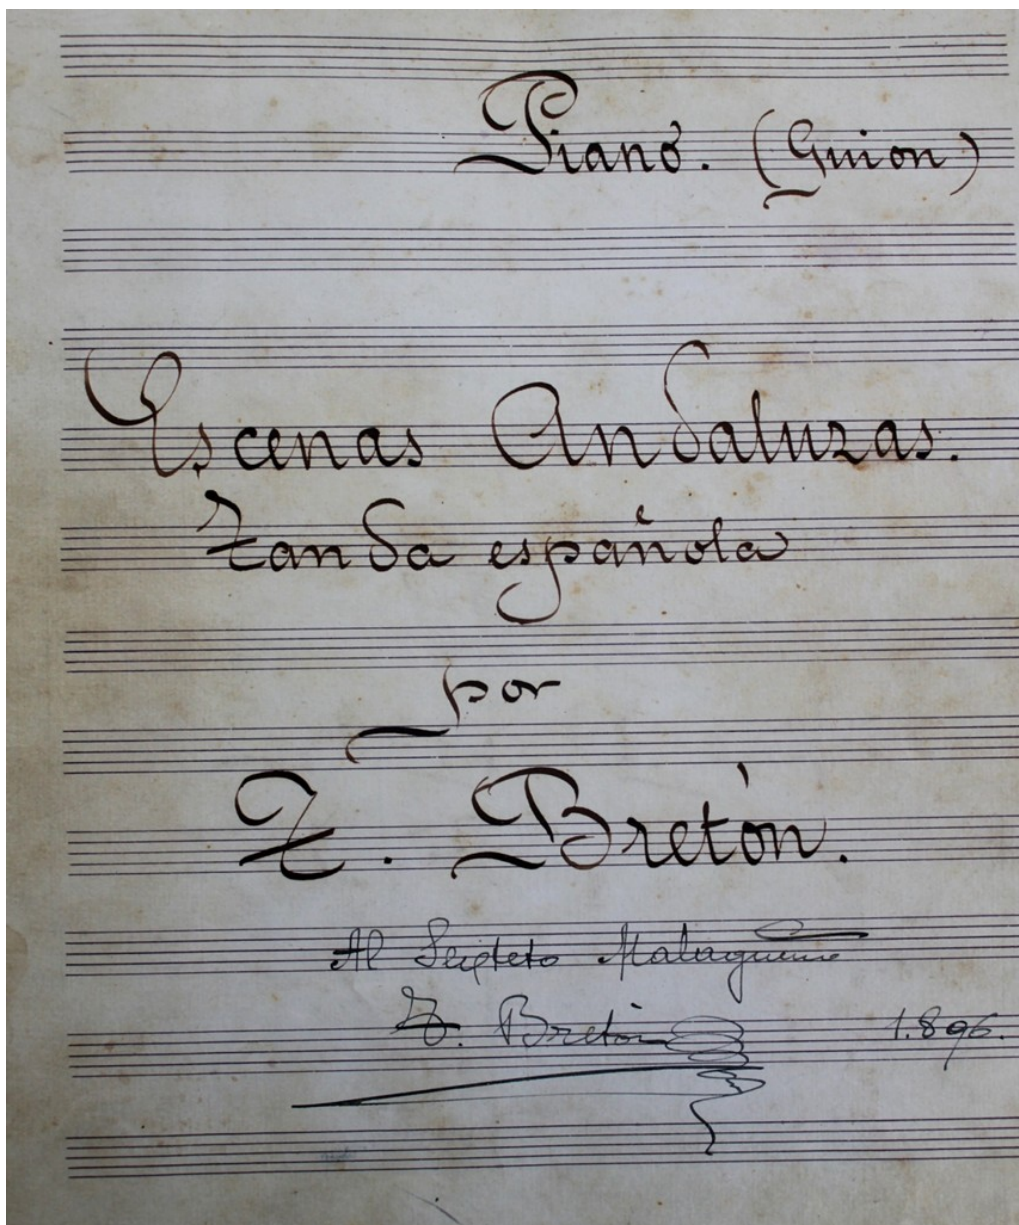 Piano. (Guion)
Escenas Andaluzas.
Tanda española
por
T. Bretón.
Al Sexteto Malagueño
T. Bretón 1.896.